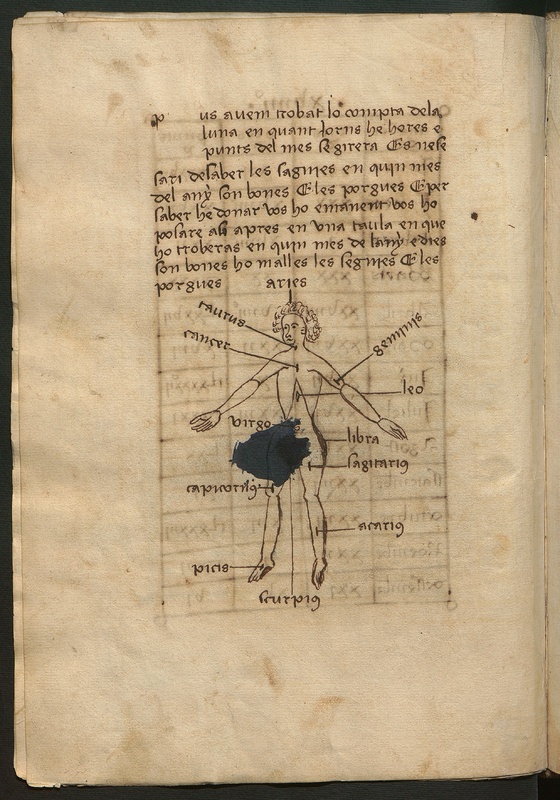 p us avem trobat lo compta dela
luna en quant iorns he hores e
punts del mes se girera Es nese
sari de saber les sagnies en quin mes
del any son bones E les porgues E per
saber he donar vos ho emanent vos ho
posare asi apres en una taula en que
ho trobaras en quin mes de lany e dies
son bones ho malles les segnies E les
porgues
aries
taurus
geminis
cancer
leo
virgo
libra
sagitariꝯ
capicorniꝯ
acariꝯ
picis
scurpiꝯ